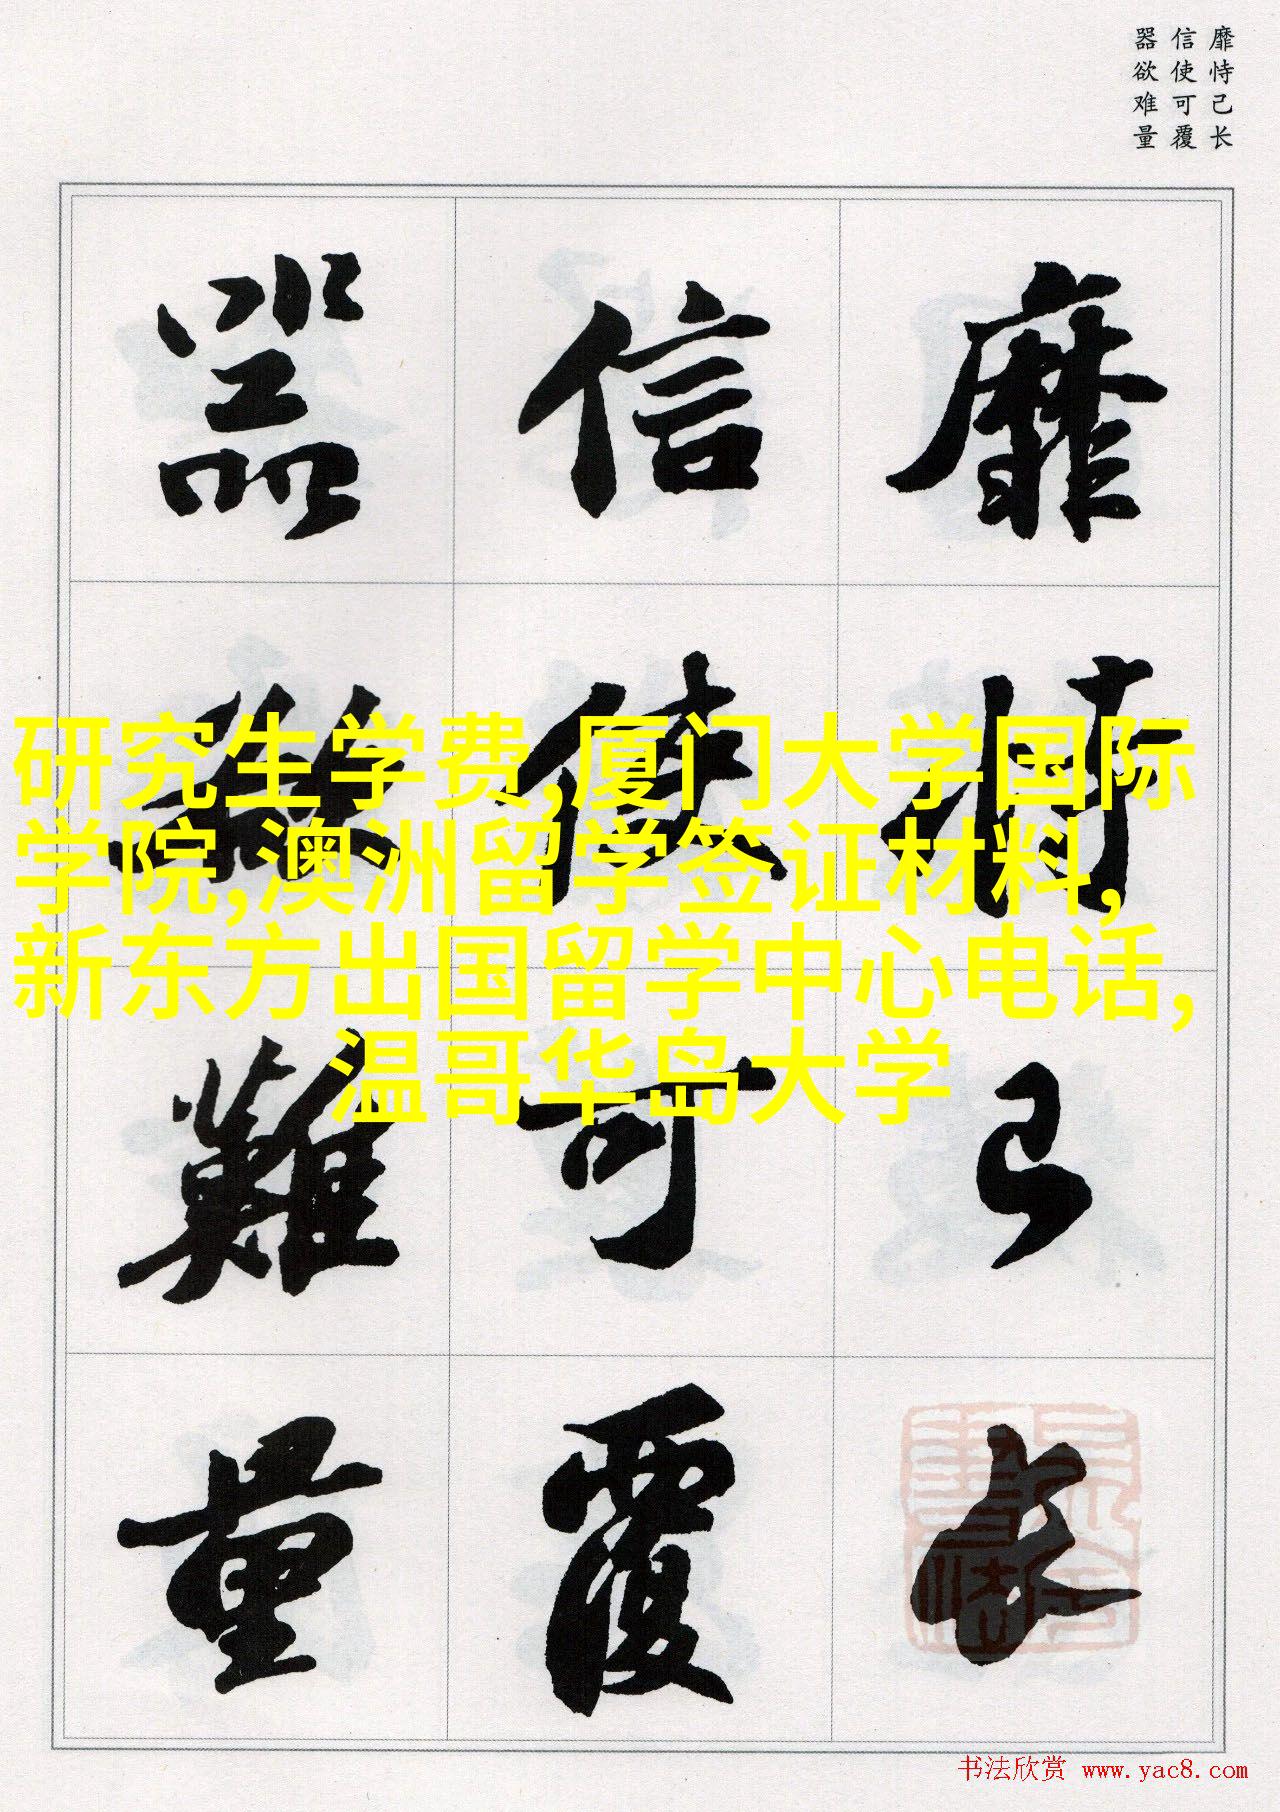 靡恃己长
信使可覆
器欲难量
靡恃己长
信使可覆
器欲難量
研究生学费,厦门大学国际
学院,澳洲留学签证材料,
新东方出国留学中心电话,
温哥华岛大学
书法欣赏 www.yac8.com